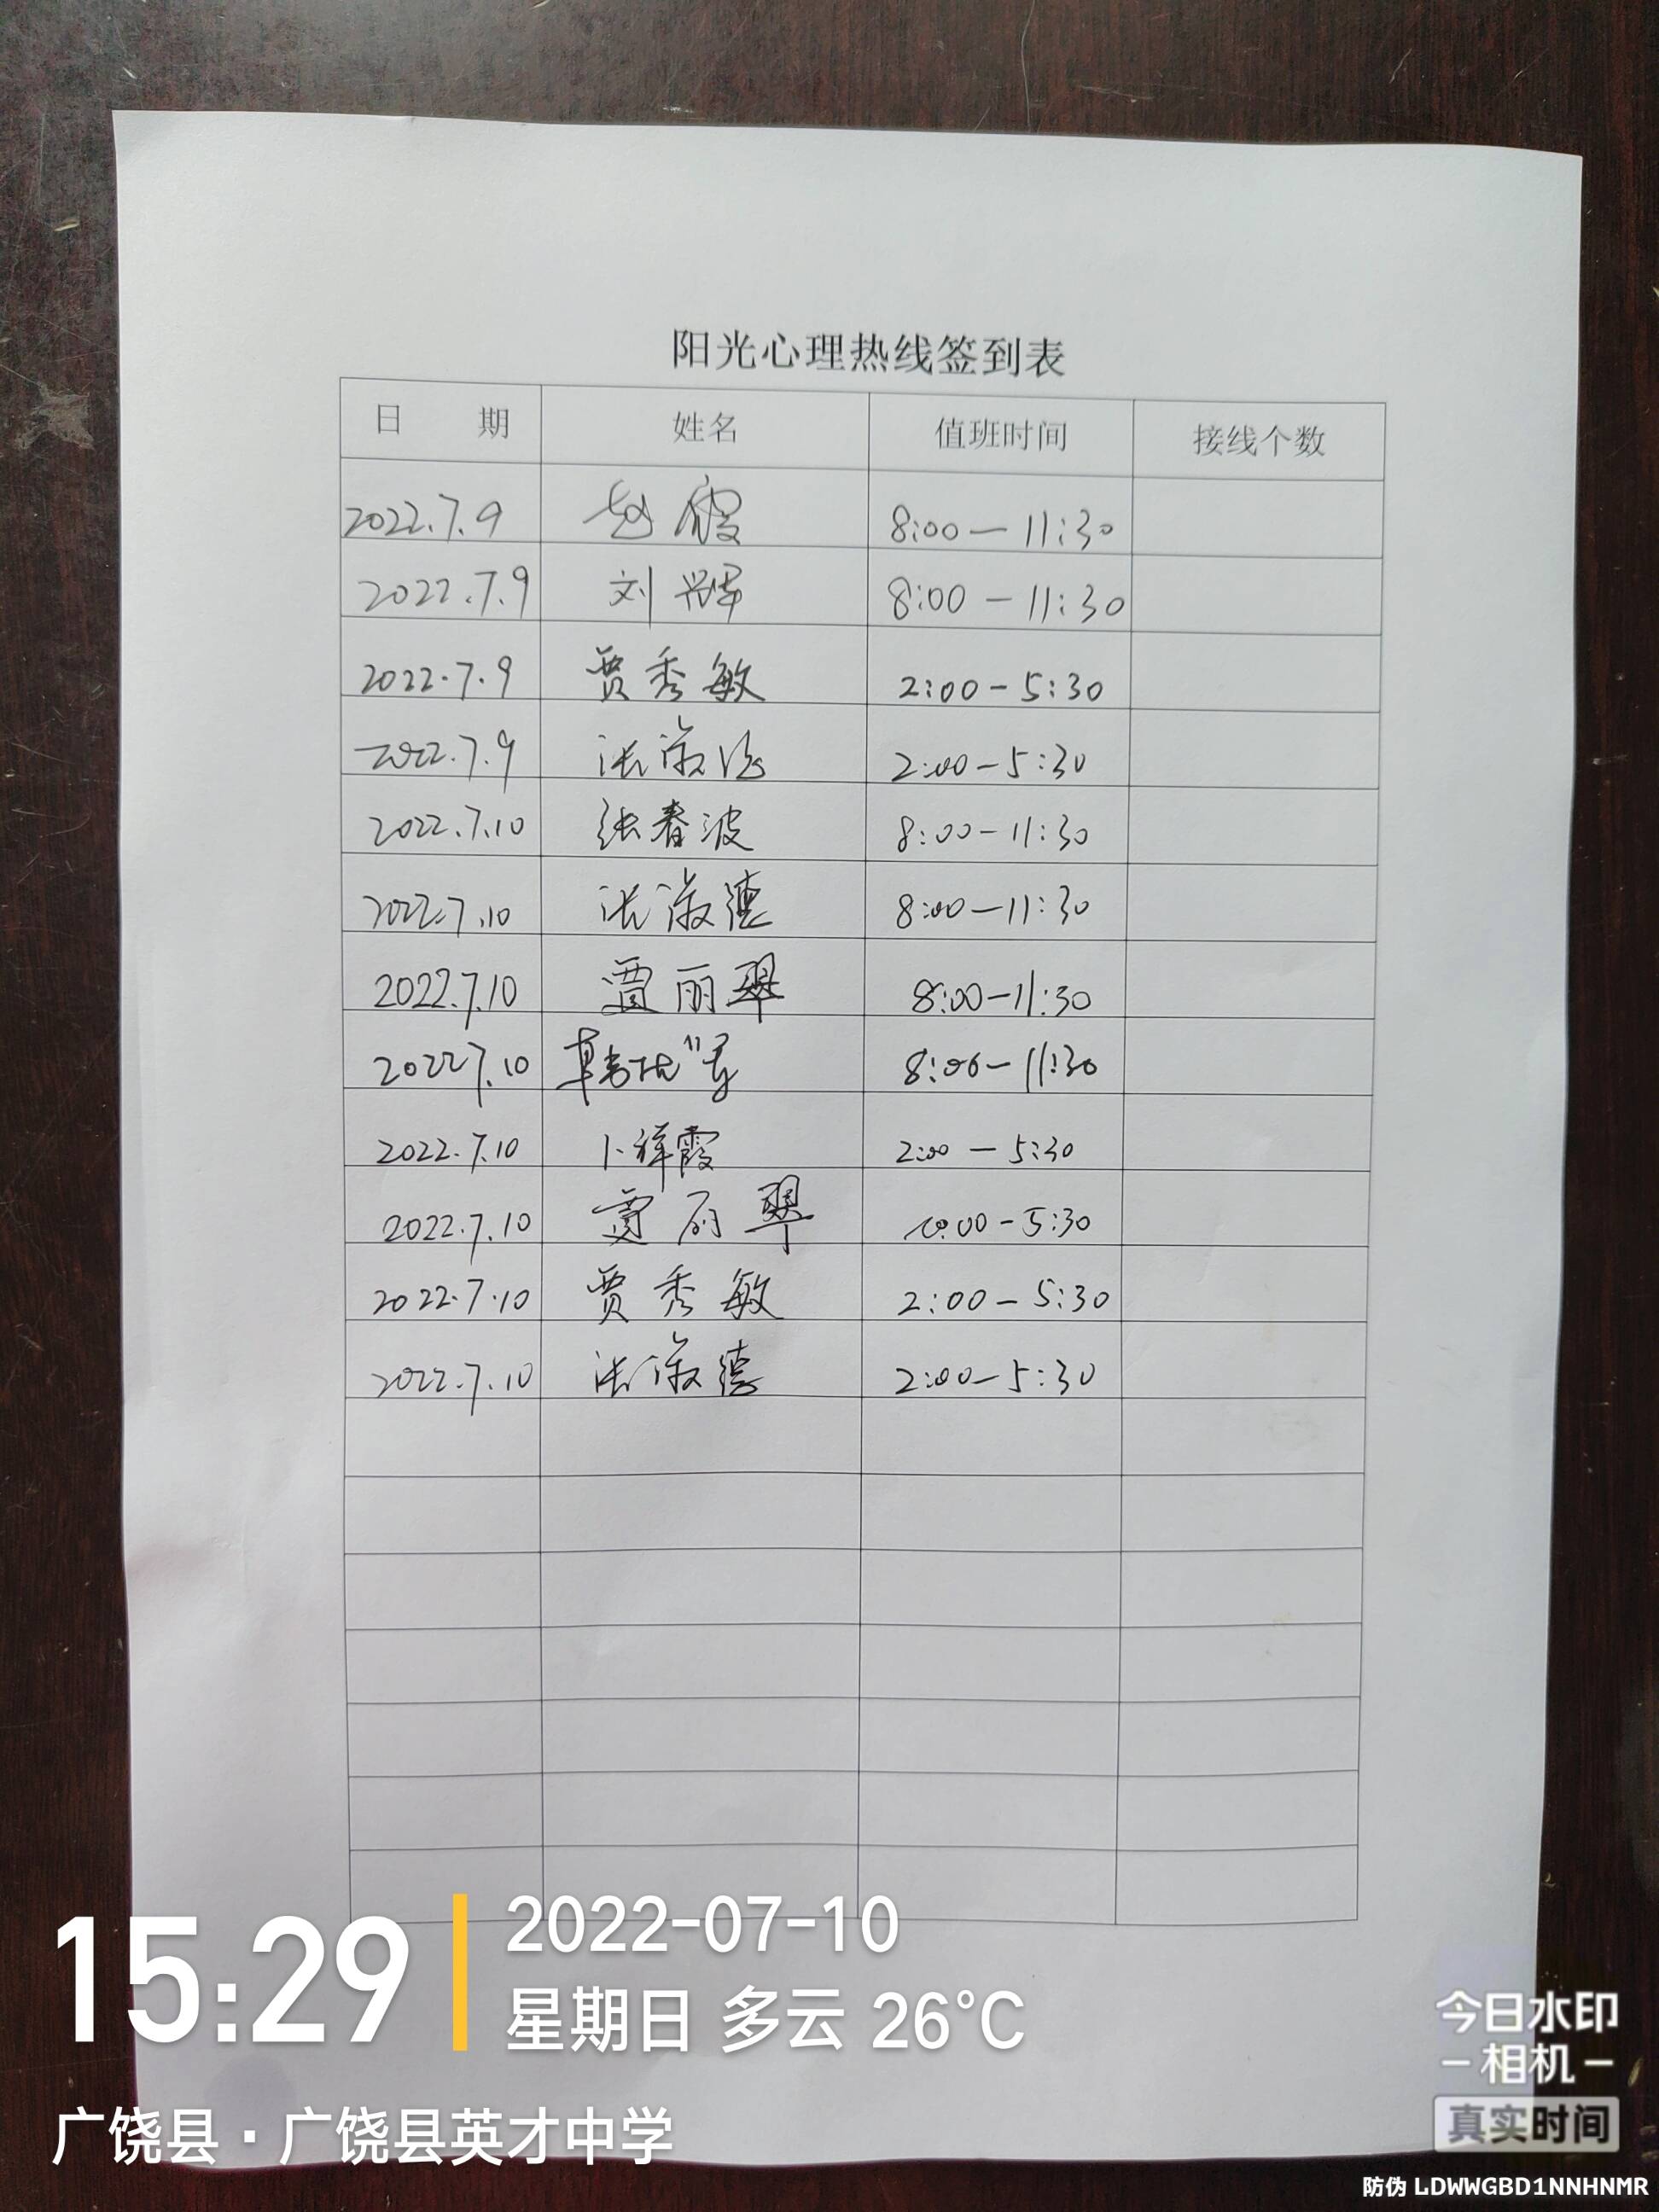 阳光心理热线签到表
日 期 姓名 值班时间 接线个数
2022.7.9 赵霞 8:00-11:30
2022.7.9 刘 8:00-11:30
2022.7.9 贾秀敏 2:00-5:30
2022.7.9 张淑德 2:00-5:30
2022.7.10 张春波 8:00-11:30
2022.7.10 张淑德 8:00-11:30
2022.7.10 贾丽翠 8:00-11:30
2022.7.10 韩 8:00-11:30
2022.7.10 卜祥霞 2:00-5:30
2022.7.10 贾丽翠 2:00-5:30
2022.7.10 贾秀敏 2:00-5:30
2022.7.10 张淑德 2:00-5:30
15:29
2022-07-10
星期日 多云 26°C
广饶县·广饶县英才中学
今日水印
-相机-
真实时间
防伪 LDWWGBD1NNHNMR